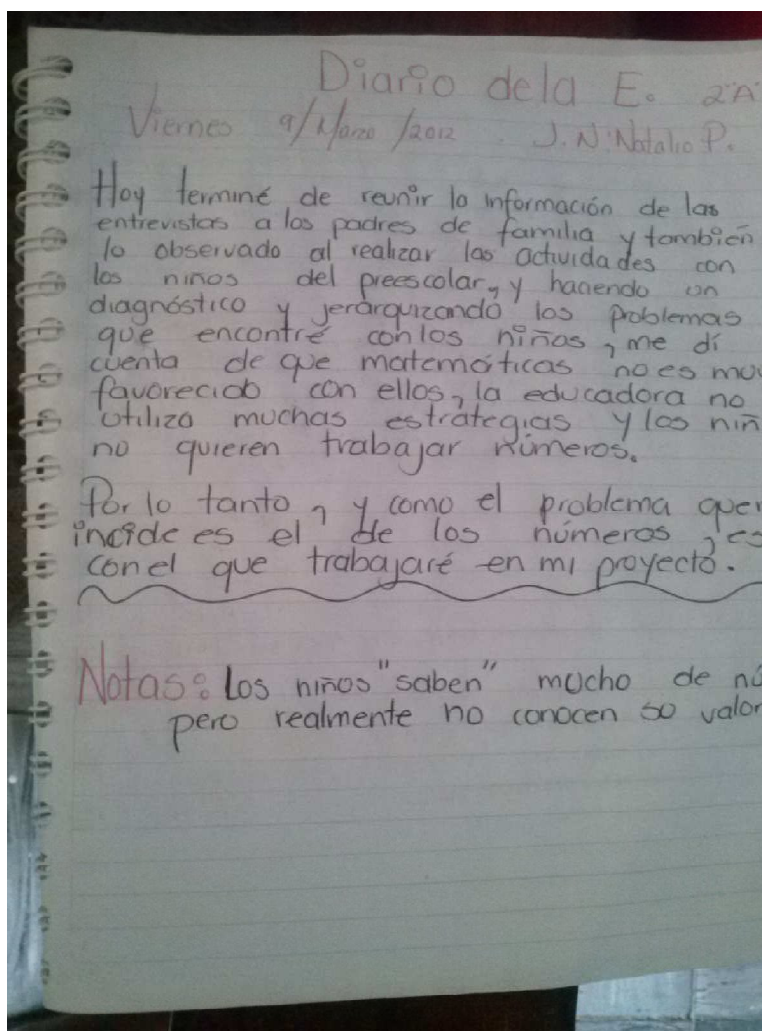 Diario dela E. 2°A
Viernes 9/Marzo/2012 J.N. Natalio P.
Hoy terminé de reunir la información de las
entrevistas a los padres de familia y también
lo observado al realizar las actividades con
los niños del preescolar, y haciendo un
diagnóstico y jerarquizando los problemas
que encontré conlos niños, me dí
cuenta de que matemáticas no es muy
favorecido con ellos, la educadora no
utiliza muchas estrategias y los niñ
no quieren trabajar números.
Por lo tanto, y como el problema que
incide es el de los números, es
conel que trabajaré en mi proyecto.
Notas: Los niños "saben" mucho de nú
pero realmente no conocen su valor